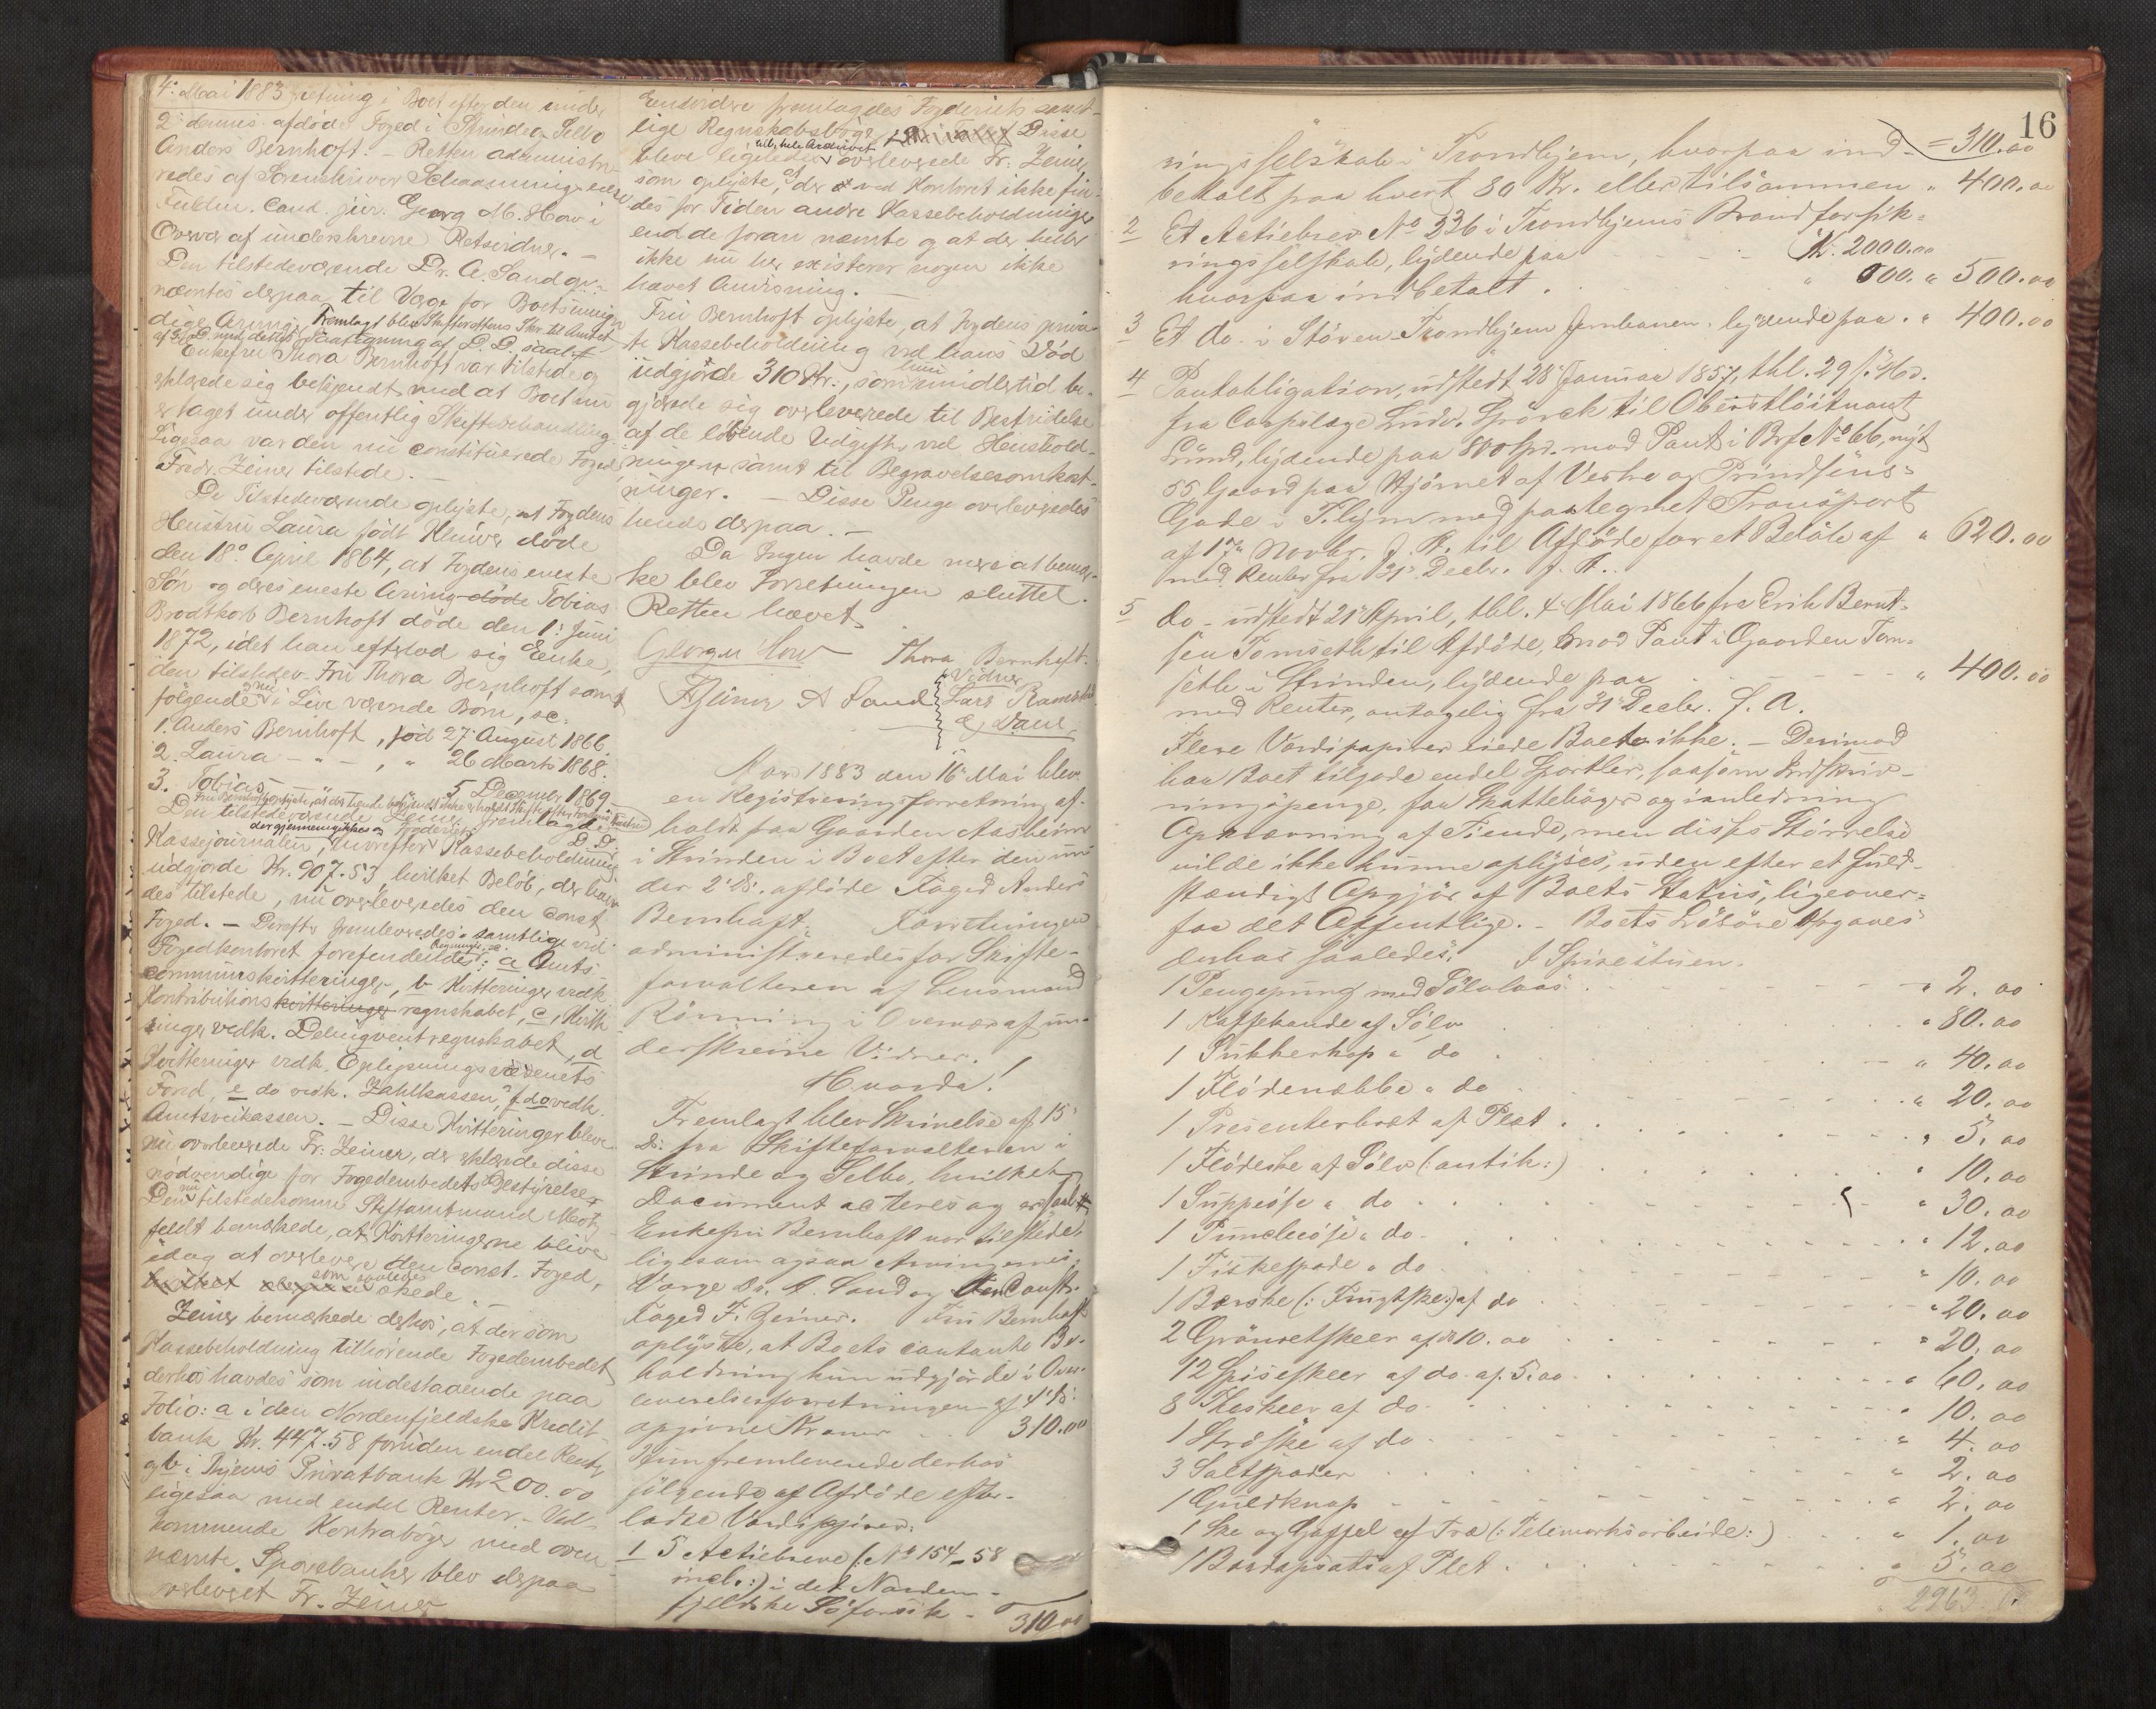 4. Mai 1883 Forretning i Boet efter den under
2 dennes afdøde Foged i Strinde og Selbo
Anders Bernhoft. - Retten administre-
redes af Sorenskriver Schaanning ved
Fuldm. Cand. jur. Georg M. How i
Overvær af underskrevne Retsvidner. -
Den tilstedeværende Dr. A. Sand op-
nævntes derpaa til Værge for Boets umyn-
dige Arving. Fremlagt blev Skifterettens Skr. til Amtet
af 3 D. med dettes Paategning af D. D. saal.
Enkefru Thora Bernhoft var tilstede og
erklærede sig bekjendt med at Boet nu
er taget under offentlig Skiftebehandling.
Ligesaa var den nu constituerede Foged,
Fredr. Zeiner tilstede. -
De Tilstedeværende oplyste, at Fogdens
Hustru Laura født Klüwer døde
den 18de April 1864, at Fogdens eneste
Søn og deres eneste Arving døde Tobias
Brodtkorb Bernhoft døde den 1. Juni
1872, idet han efterlod sig Enke,
den tilstedev. Fru Thora Bernhoft samt
følgende nu i Live værende Børn, sc.
1. Anders Bernhoft, født 27. August 1866.
2. Laura - " - , " 26 Marts 1868.
3. Tobias 5 December 1869
Den tilstedeværende Zeiner fremlagde
Kassejournalen, der gjennemgikkes og hvorefter Fogderiets Kassebeholdning D. D.
udgjorde Kr. 907.53 hvilket Beløb, der hav-
des tilstede, nu overleveredes den const.
Foged. - Derefter fremleveredes samtlige ved
Fogedkontoret forefindendes: a Amts-
communekvitteringer, b Kvitteringer vedk.
Kontributions kvitteringer regnskabet, c, Kvitte-
ringer vedk. Delinqventregnskabet, d
Kvitteringer vedk. Oplysningsvæsenets
Fond, e do vedk. Zahlkassen, f do vedk.
Amtsveikassen. - Disse Kvitteringer bleve
nu overleverede Fr. Zeiner, der erklærede disse
nødvendige for Fogedembedets Bestyrelse.
Den nu tilstedekomne Stiftamtmand Motz-
feldt bemærkede, at Kvitteringerne blive
idag at overlevere den const. Foged,
som saaledes skede. -
Zeiner bemærkede derhos, at der som
Kassebeholdning tilhørende Fogedembedet
derhos havdes som indestaaende paa
Folio: a i den Nordenfjeldske Kredit-
bank Kr. 447.58 foruden endel Renter
og b i Thjems Privatbank Kr 200.00
ligesaa med endel Renter - Ved-
kommende Kontrabøger med oven-
nævnte Sparebanker blev derpaa
overleveret Fr. Zeiner
Endvidere fremlagdes Fogderiets samt-
lige Regnskabsbøger Disse
bleve ligeledes tilligemed hele Archivet overleverede Fr. Zeiner
som oplyste, at der ved Kontoret ikke fin-
des for Tiden andre Kassebeholdninger
end de foran nævnte og at der heller
ikke nu her existerer nogen ikke
hævet Anvisning. -
Fru Bernhoft oplyste, at Fogdens priva-
te Kassebeholdning ved hans Død
udgjorde 310 Kr., som hun imidlertid be-
gjærede sig overleverede til Bestridelse
af de løbende Udgifter ved Hushold-
ningen samt til Begravelsesomkost-
ninger. - Disse Penge overleveredes
hende derpaa. -
Da Ingen havde mere at bemær-
ke blev Forretningen sluttet.
Retten hævet.
Georg M How Thora Bernhoft.
Vidner
F Zeiner A Sand Lars Ramstad
Aar 1883 den 16 Mai blev
en Registreringsforretning af-
holdt paa Gaarden Aasheim
i Strinden i Boet efter den un-
der 2. ds. afdøde Foged Anders
Bernhoft. Forretningen
administreredes for Skifte-
forvalteren af Lensmand
Rönning i Overvær af un-
derskrevne Vidner.
Hvorda!
Fremlagt blev Skrivelse af 15
ds. fra Skifteforvalteren i
Strinde og Selbo, hvilket
Document acteres og er saal.
Enkefru Bernhoft var tilstede,
ligesom ogsaa Arvingernes
Værge Dr. A. Sand og den Const.
Foged F. Zeiner. Fru Bernhoft
oplyste, at Boets contante Be-
holdning kun udgjörde i Over-
leverelsesforretningen af 4. ds.
opgivne Kroner 310.00
Hun fremleverede derhos
fölgende af Afdöde efter-
ladte Værdipapirer:
1 5 Actiebreve (: No 154-58
incl. :) i det Norden-
fjeldske Söforsik-
310.00
16
= 310.00
ringsselskab i Trondhjem, hvorpaa ind-
betalt paa hvert 80 Kr. eller tilsammen " 400.00
2 Et Actiebrev No 336 i Trondhjems Brandforsik-
ringsselskab, lydende paa Kr. 2000.00
hvorpaa indbetalt. " 500. " 500.00
3 Et do. i Stören-Trondhjem Jernbanen. lydende paa. " 400.00
4 Pantobligation, udstedt 28 Januar 1857, thl. 29 s. Md.
fra Corpslæge Ludv. Spörck til Oberstlöitnant
Lund, lydende paa 800 Spd. mod Pant i Brf No 66, nyt
55, Gaard paa Hjörnet af Vestre og Prindsens-
Gade i T.hjem med paategnet Transport
af 17 Novbr. f. A. til Afdöde for et Belöb af " 620.00
med Renter fra 31 Decbr. f. A.
5 do - udstedt 21 April, thl. 4 Mai 1866 fra Erik Bernt-
sen Tomseth til Afdöde, mod Pant i Gaarden Tom-
seth i Strinden, lydende paa " 400.00
med Renter, antagelig fra 31 Decbr. f. A.
Flere Værdipapirer eiede Boet ikke. - Derimod
har Boet tilgode endel Sportler, saasom Indskriv-
ningspenge, for Skattebøger og i anledning
Opkrævning af Tiende, men disses Störrelse
vilde ikke kunne oplyses, uden efter et fuld-
stændigt Opgjör af Boets Status, ligeover-
for det Offentlige. - Boets Lösöre opgaves
derhos saaledes: I Spisestuen.
1 Pengepung med Sölvlaas " 2.00
1 Kaffekande af Sölv " 80.00
1 Sukkerkop " do " 40.00
1 Flödenæbbe " do " 20.00
1 Presenterbræt af Plet " 5.00
1 Flödeske af Sölv (: antik :) " 10.00
1 Suppeöse " do " 30.00
1 Puncheöse " do " 12.00
1 Fiskespade " do " 10.00
1 Bærske (: Frugtske :) af do " 20.00
2 Grönsetskeer af do 10.00 " 20.00
12 Spiseskeer af do af 5.00 " 60.00
8 Theskeer af do " 10.00
1 Ströske af do " 4.00
3 Saltspader " 2.00
1 Guldknap " 2.00
1 Ske og Gaffel af Træ (: Telemarksarbeide :) " 1.00
1 Bordopsats af Plet " 5.00
2963